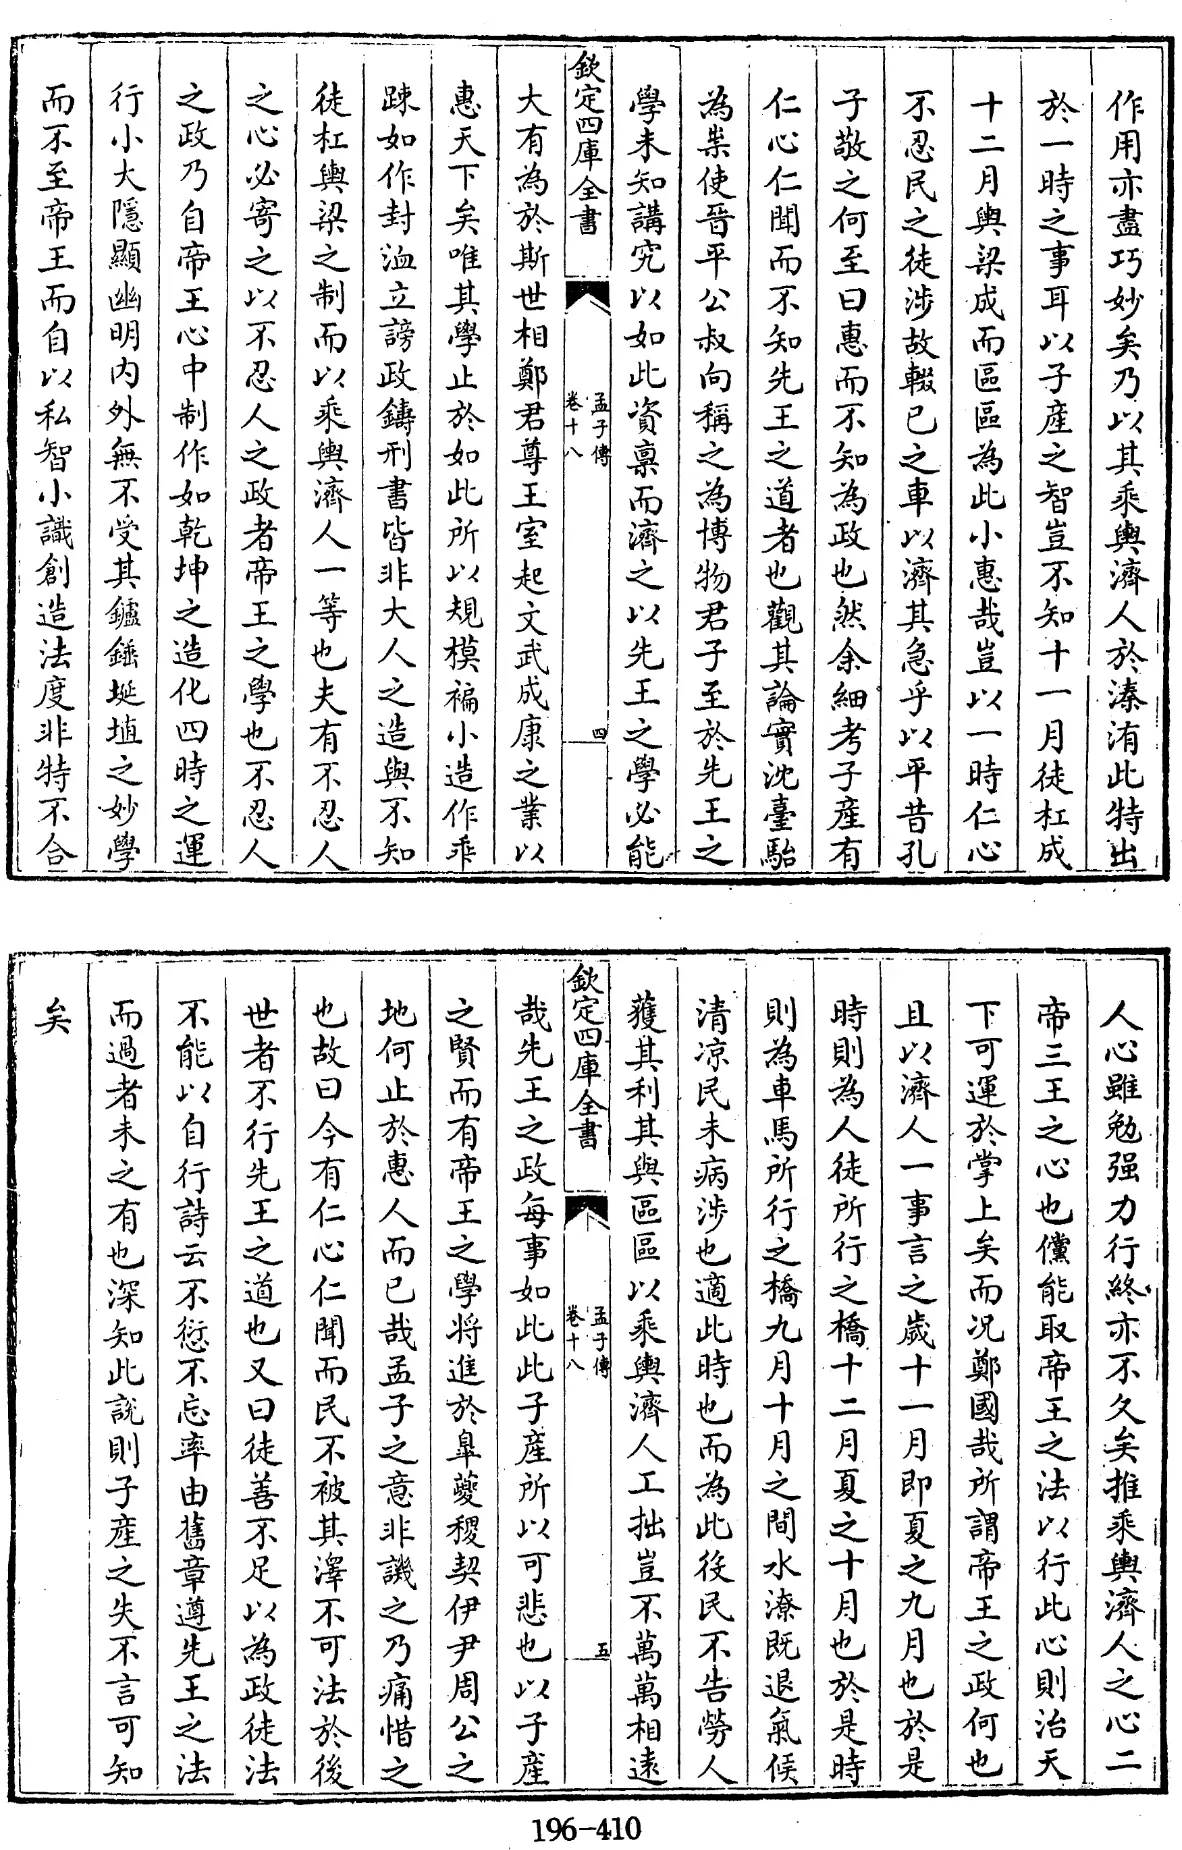 作用亦盡巧妙矣乃以其乘輿濟人於溱洧此特出
於一時之事耳以子產之智豈不知十一月徒杠成
十二月輿梁成而區區為此小惠哉豈以一時仁心
不忍民之徒涉故輟已之車以濟其急乎以平昔孔
子敬之何至曰惠而不知為政也然余細考子產有
仁心仁聞而不知先王之道者也觀其論實沈臺駘
為祟使晉平公叔向稱之為博物君子至於先王之
學未知講究以如此資禀而濟之以先王之學必能
欽定四庫全書
孟子傳
卷十八
四
大有為於斯世相鄭君尊王室起文武成康之業以
惠天下矣唯其學止於如此所以規模褊小造作乖
踈如作封洫立謗政鑄刑書皆非大人之造與不知
徒杠輿梁之制而以乘輿濟人一等也夫有不忍人
之心必寄之以不忍人之政者帝王之學也不忍人
之政乃自帝王心中制作如乾坤之造化四時之運
行小大隱顯幽明内外無不受其鑪錘埏埴之妙學
而不至帝王而自以私智小識創造法度非特不合
人心雖勉强力行終亦不久矣推乘輿濟人之心二
帝三王之心也儻能取帝王之法以行此心則治天
下可運於掌上矣而况鄭國哉所謂帝王之政何也
且以濟人一事言之歲十一月即夏之九月也於是
時則為人徒所行之橋十二月夏之十月也於是時
則為車馬所行之橋九月十月之間水潦既退氣候
清凉民未病涉也適此時也而為此役民不告勞人
獲其利其與區區以乘輿濟人工拙豈不萬萬相遠
欽定四庫全書
孟子傳
卷十八
五
哉先王之政每事如此此子產所以可悲也以子產
之賢而有帝王之學將進於臯夔稷契伊尹周公之
地何止於惠人而已哉孟子之意非譏之乃痛惜之
也故曰今有仁心仁聞而民不被其澤不可法於後
世者不行先王之道也又曰徒善不足以為政徒法
不能以自行詩云不愆不忘率由舊章遵先王之法
而過者未之有也深知此說則子產之失不言可知
矣
196-410